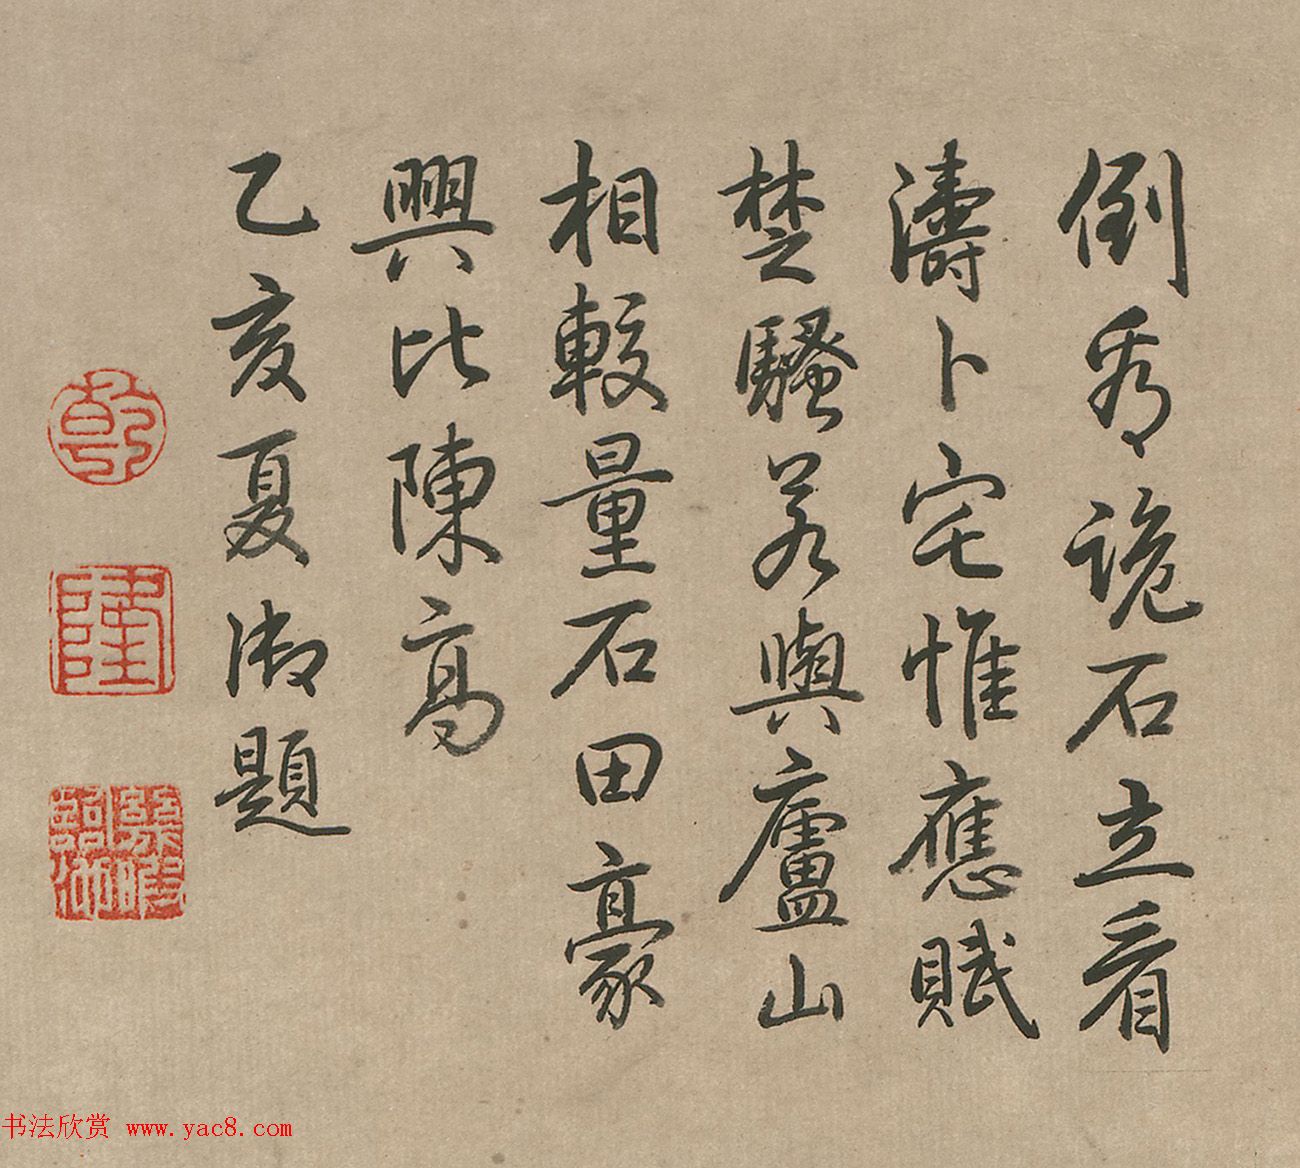 倒秀詭石立看
濤卜宅惟應賦
楚騷若與廬山
相較量石田豪
興比陳高
乙亥夏御題
乾
隆
幾暇臨池
书法欣赏 www.yac8.com